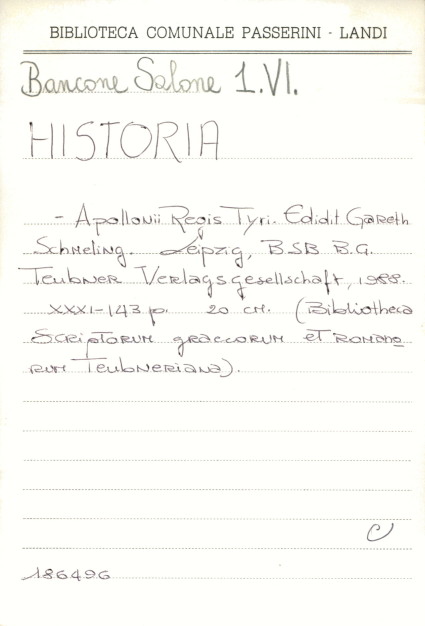 BIBLIOTECA COMUNALE PASSERINI - LANDI
Bancone Salone 1.VI.
HISTORIA
- Apollonii Regis Tyri. Edidit Gareth
Schmeling. Leipzig, BSB B.G.
Teubner Verlagsgesellschaft, 1988.
XXXI-143 p. 20 cm. (Bibliotheca
Scriptorum graecorum et Romano
rum Teubneriana).
186496